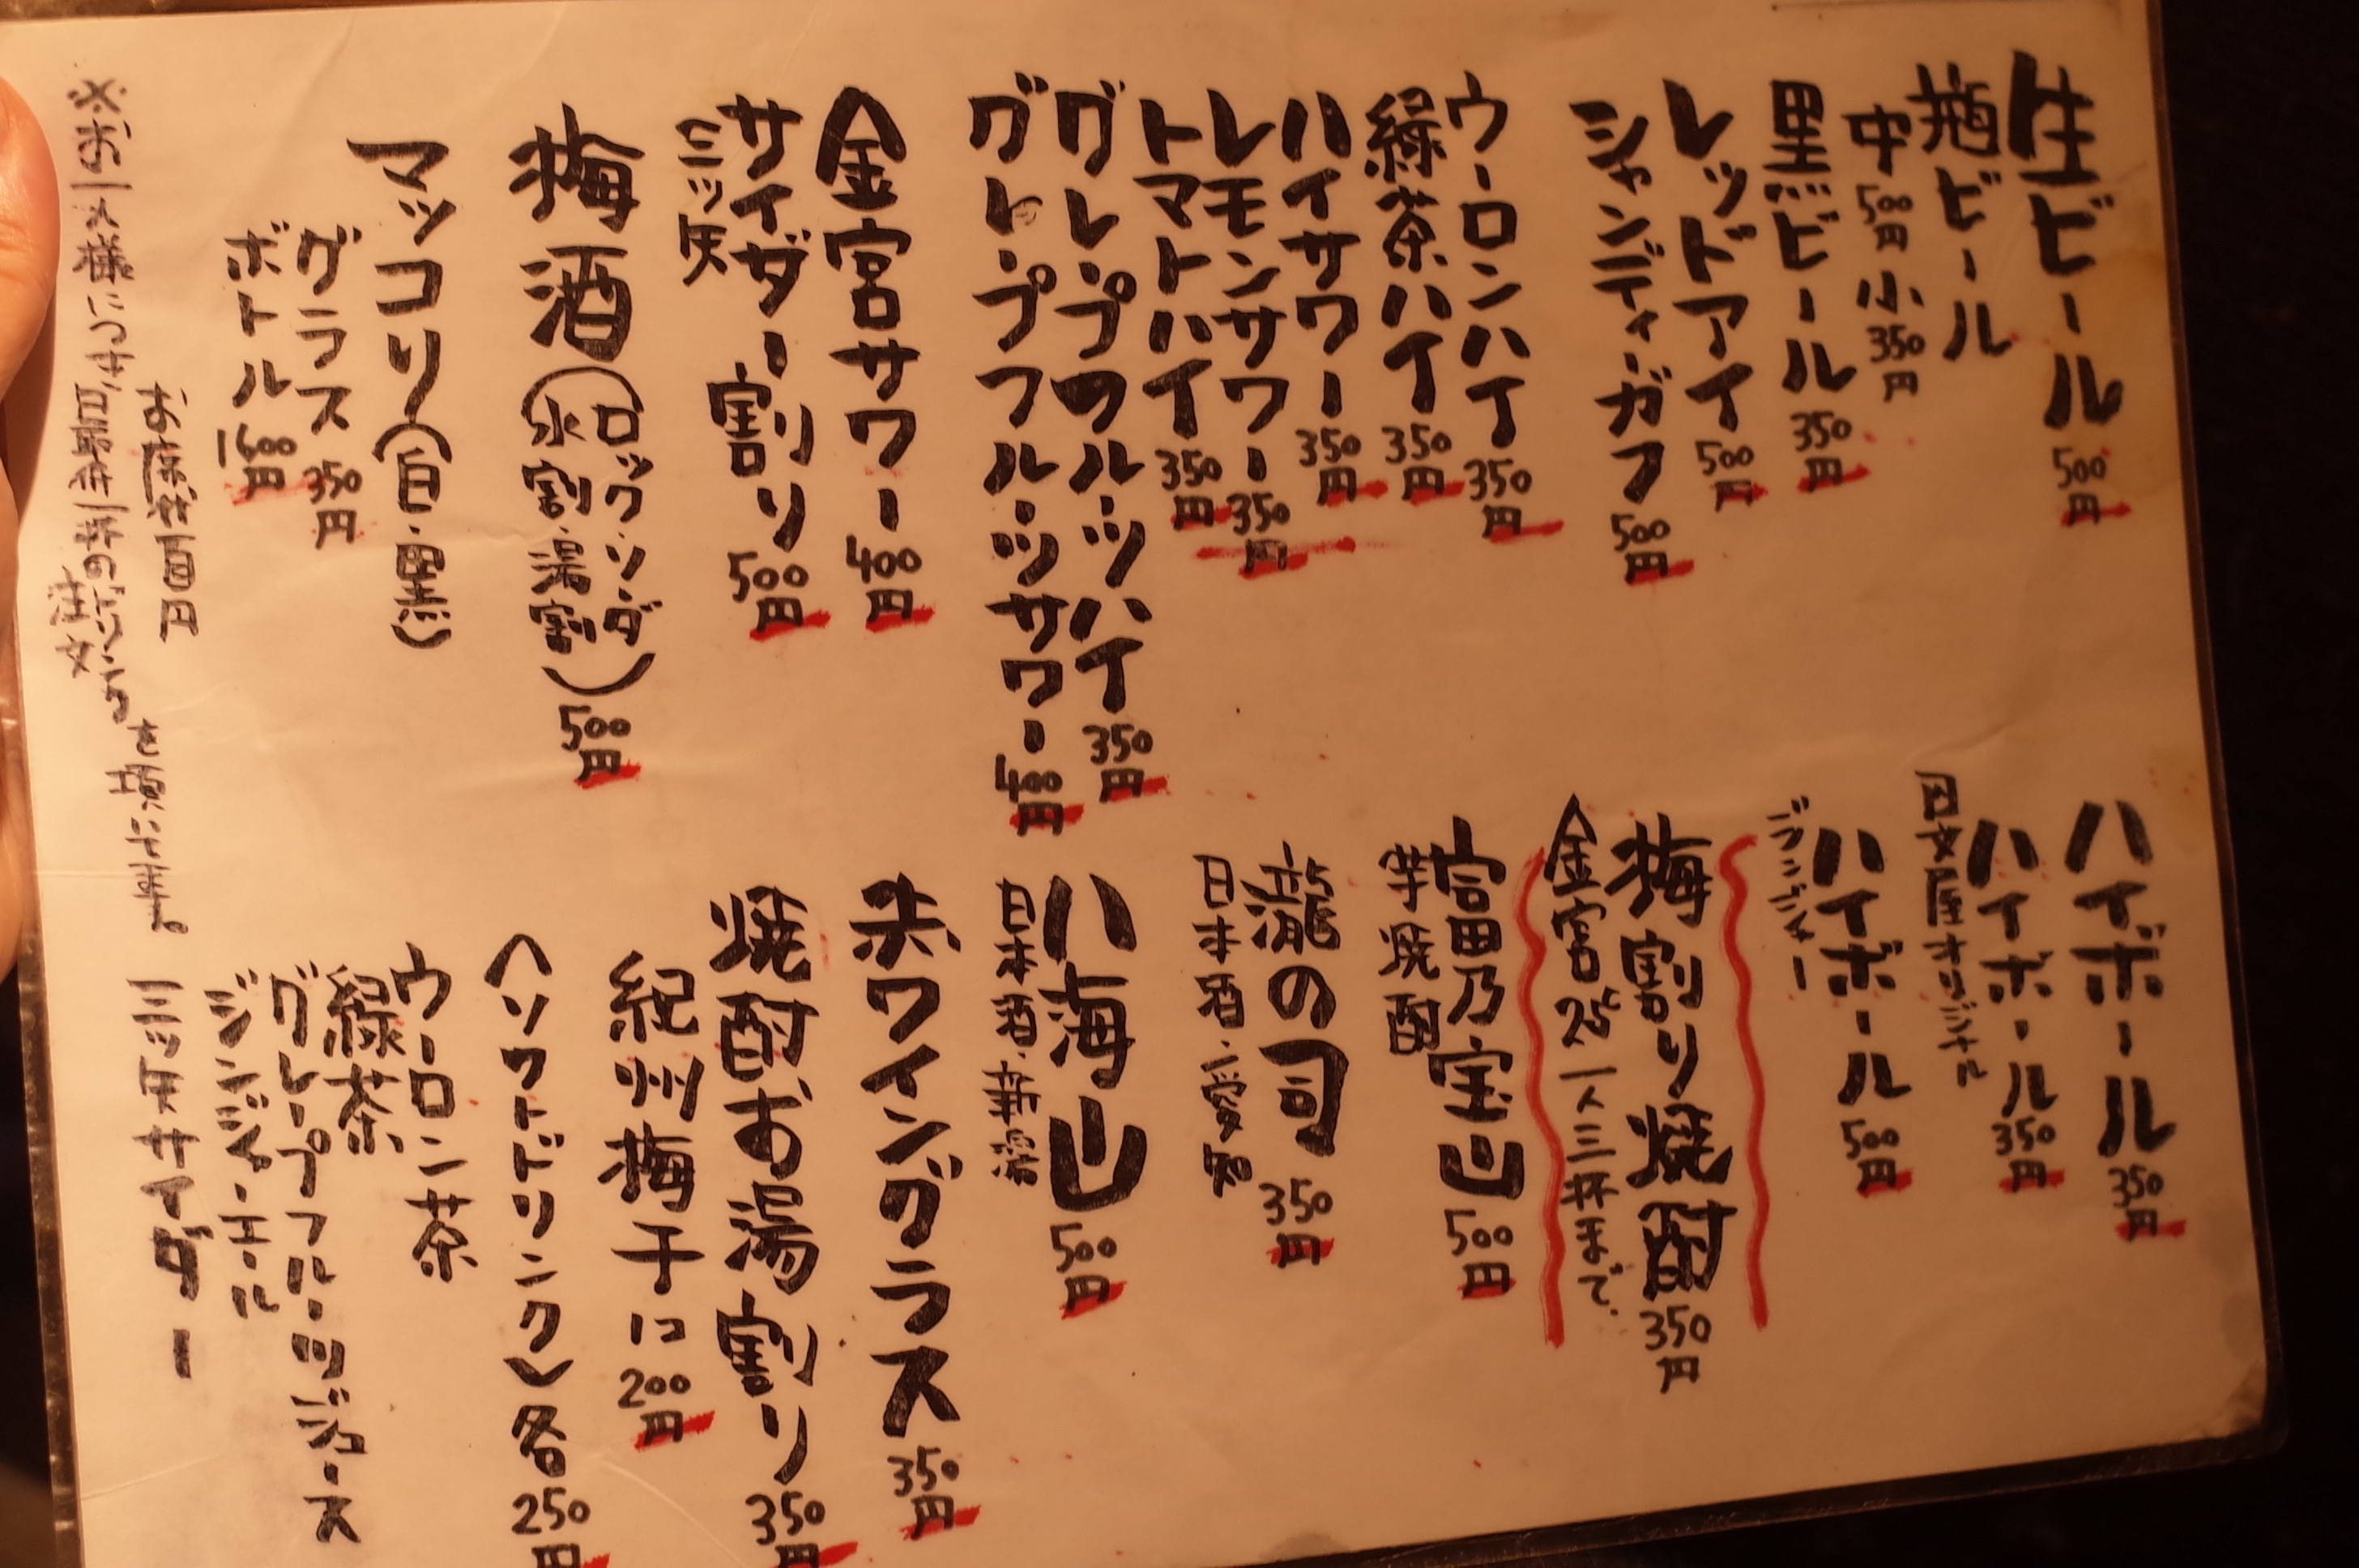 生ビール 500円
瓶ビール
中500円 小350円
黒ビール 350円
レッドアイ 500円
シャンディーガフ 500円
ウーロンハイ 350円
緑茶ハイ 350円
ハイサワー 350円
レモンサワー 350円
トマトハイ 350円
グレープフルーツハイ 350円
グレープフルーツサワー 400円
金宮サワー 400円
サイダー割り 500円
三ッ矢
梅酒(ロック・ソーダ
水割・湯割) 500円
マッコリ(白・黒)
グラス 350円
ボトル 1600円
ハイボール 350円
ハイボール 350円
ハイボール 500円
ジランジャー
梅割り焼酎 350円
金宮25° 一人三杯まで
富乃宝山 500円
芋焼酎
瀧の司 350円
日本酒・愛知
八海山 500円
日本酒・新潟
赤ワイングラス 350円
焼酎お湯割り 350円
紀州梅干に 200円
〈ソフトドリンク〉各250円
ウーロン茶
緑茶
グレープフルーツジュース
ジンジャーエール
三ッ矢サイダー
※お一人様につき、
を頂いてます。
注文